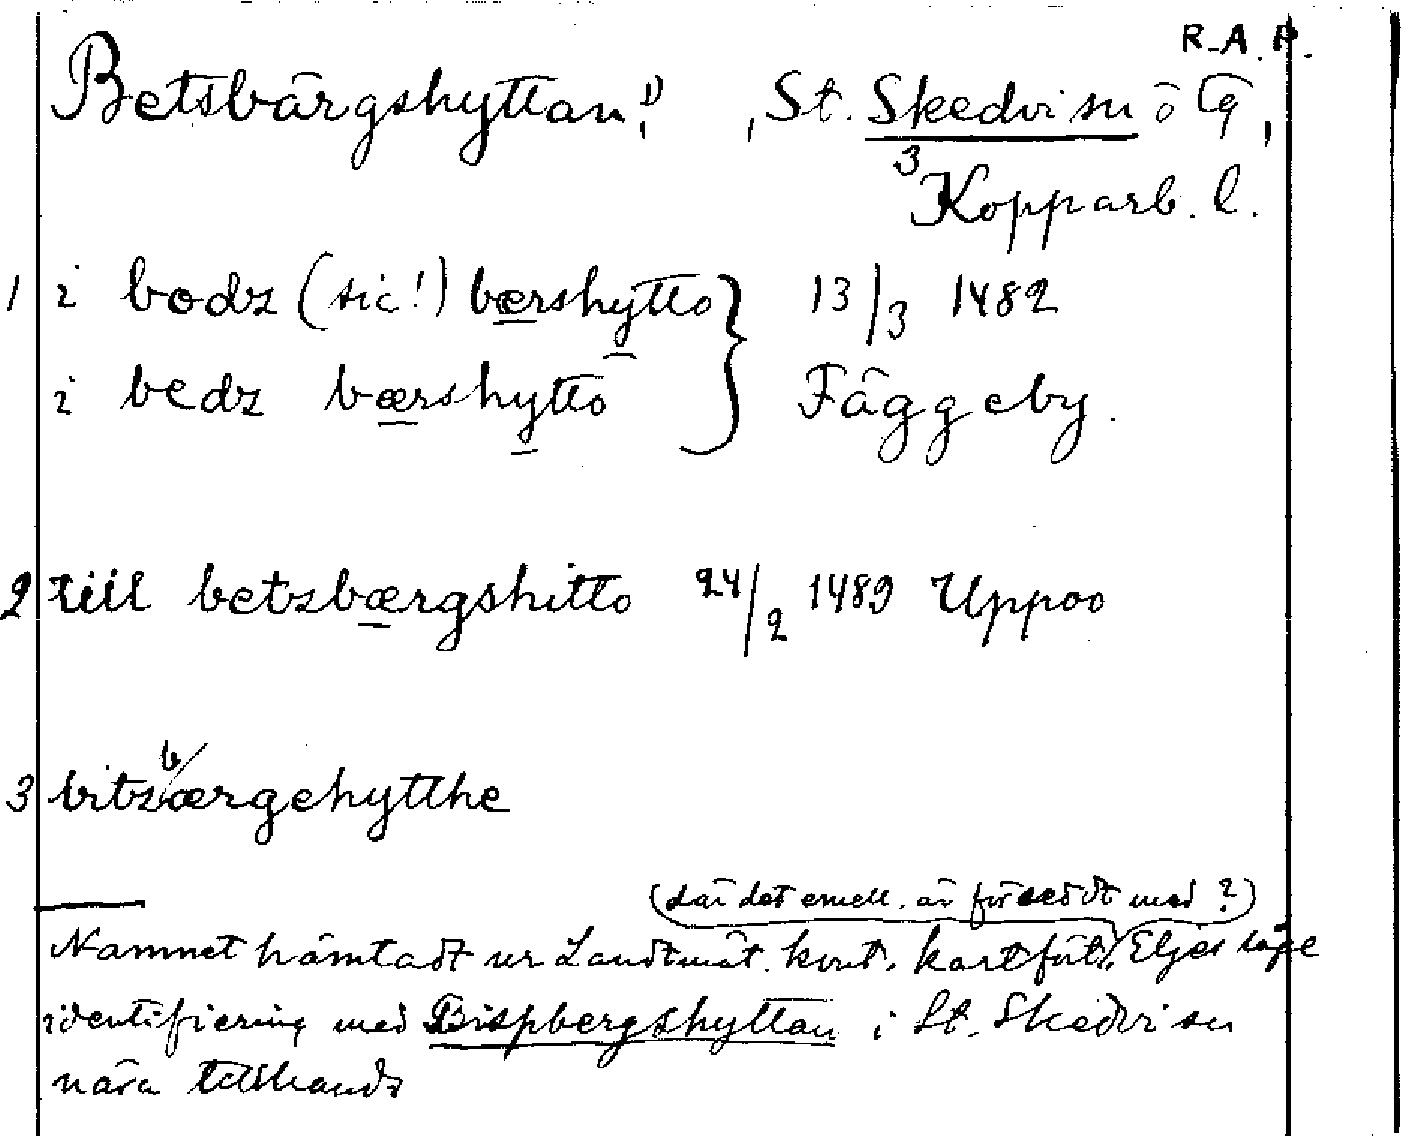 R.A.P.
Betsbärgshyttan?¹⁾, St. Skedvi sn o
Kopparb. l.
1 i bodz (sic!) bærshytto } 13/3 1482
i bedz bærshytto } Fäggeby.
2 till betzbærgshitto 24/2 1489 Uppoo
3 bitzbærgehytthe
(där det emell. är försedt med ?)
Namnet hämtadt ur Landtmät. kont. kartfört. Eljes läge
identifiering med Bispbergshyttan i St. Skedvi sn
nära tillhands